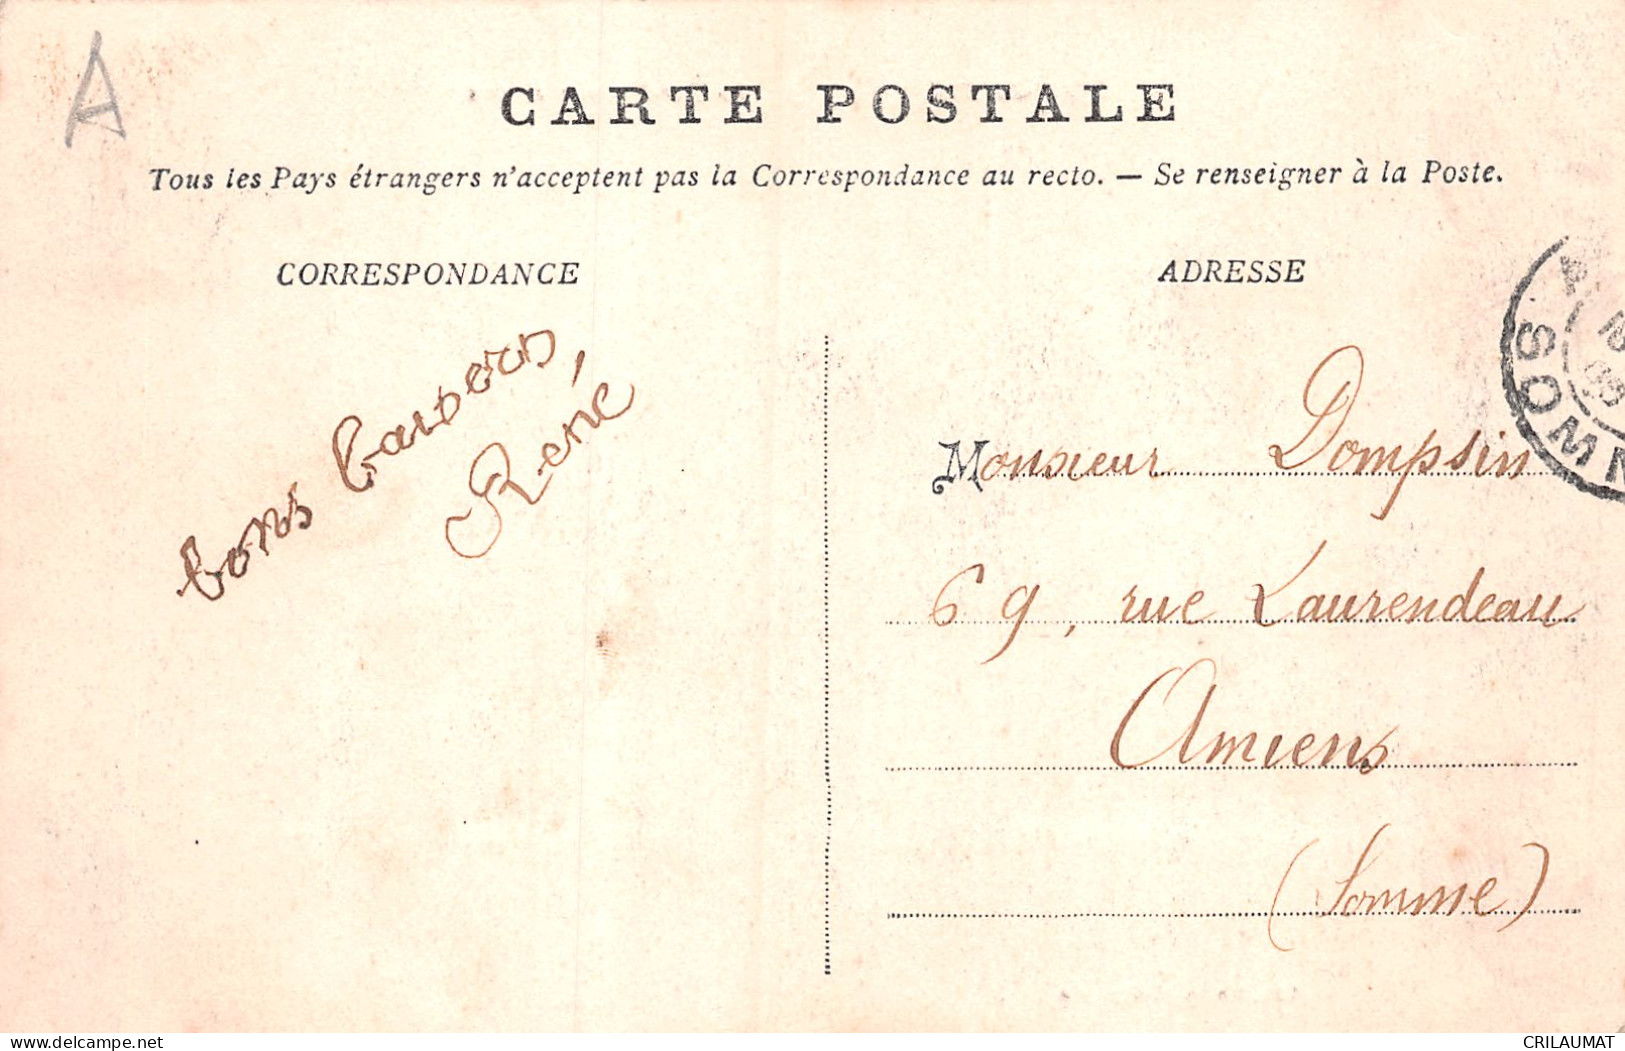 A
CARTE POSTALE
Tous les Pays étrangers n'acceptent pas la Correspondance au recto. — Se renseigner à la Poste.
CORRESPONDANCE
bons baisers
René
ADRESSE
Monsieur Dompsin
69, rue Laurendeau
Amiens
(Somme)
SOMM
www.delcampe.net
CRILAUMAT